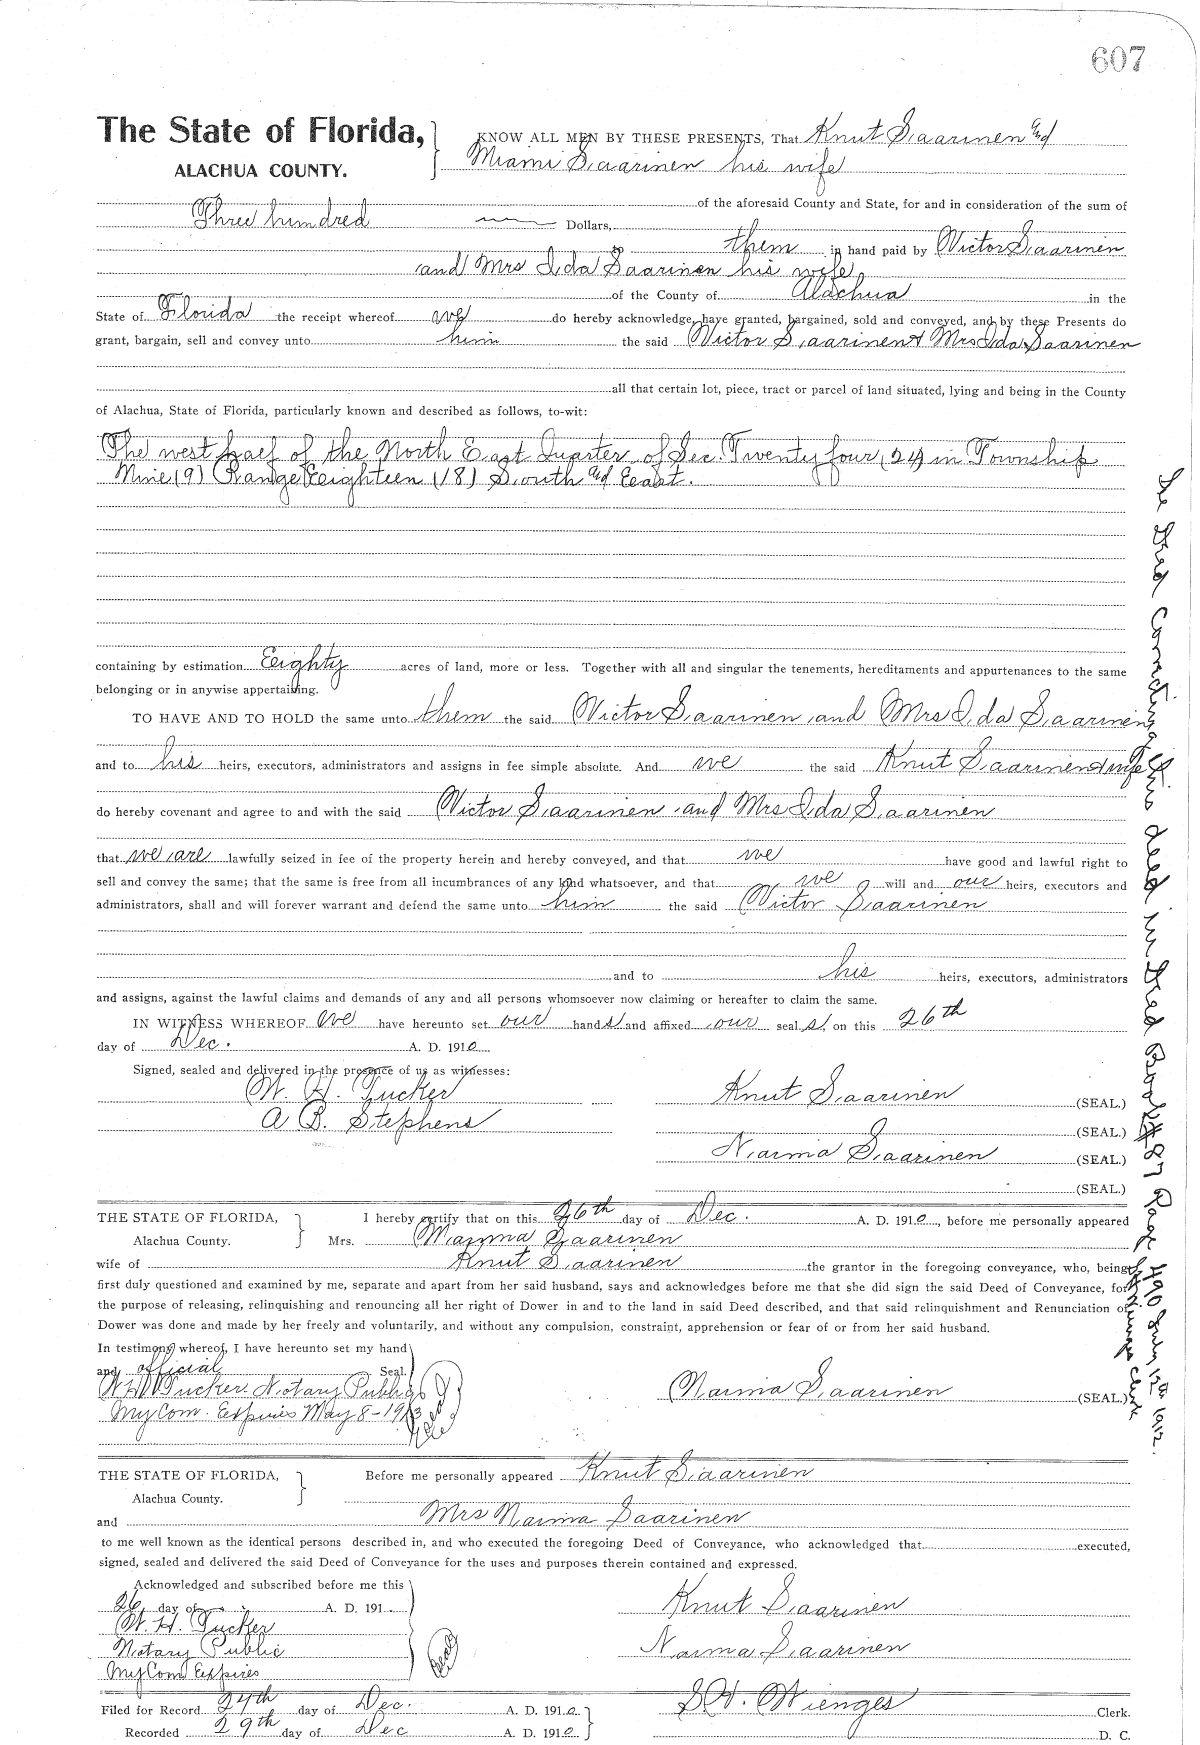 607
The State of Florida,
ALACHUA COUNTY.
KNOW ALL MEN BY THESE PRESENTS, That Knut Saarinen and
Miami Saarinen his wife
of the aforesaid County and State, for and in consideration of the sum of
Three hundred Dollars,
them in hand paid by Victor Saarinen
and Mrs Ida Saarinen his wife
of the County of Alachua in the
State of Florida the receipt whereof we do hereby acknowledge, have granted, bargained, sold and conveyed, and by these Presents do
grant, bargain, sell and convey unto him the said Victor Saarinen & Mrs Ida Saarinen
all that certain lot, piece, tract or parcel of land situated, lying and being in the County
of Alachua, State of Florida, particularly known and described as follows, to-wit:
The west half of the North East Quarter of Sec. Twenty four (24) in Township
Nine (9) Range Eighteen (18) South and East.
containing by estimation Eighty acres of land, more or less. Together with all and singular the tenements, hereditaments and appurtenances to the same
belonging or in anywise appertaining.
TO HAVE AND TO HOLD the same unto them the said Victor Saarinen and Mrs Ida Saarinen
and to his heirs, executors, administrators and assigns in fee simple absolute. And we the said Knut Saarinen & wife
do hereby covenant and agree to and with the said Victor Saarinen and Mrs Ida Saarinen
that we are lawfully seized in fee of the property herein and hereby conveyed, and that we have good and lawful right to
sell and convey the same; that the same is free from all incumbrances of any kind whatsoever, and that we will and our heirs, executors and
administrators, shall and will forever warrant and defend the same unto him the said Victor Saarinen
and to his heirs, executors, administrators
and assigns, against the lawful claims and demands of any and all persons whomsoever now claiming or hereafter to claim the same.
IN WITNESS WHEREOF We have hereunto set our hands and affixed our seal s on this 26th
day of Dec. A. D. 1910
Signed, sealed and delivered in the presence of us as witnesses:
W. H. Tucker
A B. Stephens
Knut Saarinen (SEAL.)
(SEAL.)
Naima Saarinen (SEAL.)
(SEAL.)
THE STATE OF FLORIDA,
Alachua County.
I hereby certify that on this 26th day of Dec. A. D. 1910, before me personally appeared
Mrs. Naima Saarinen
wife of Knut Saarinen the grantor in the foregoing conveyance, who, being
first duly questioned and examined by me, separate and apart from her said husband, says and acknowledges before me that she did sign the said Deed of Conveyance, for
the purpose of releasing, relinquishing and renouncing all her right of Dower in and to the land in said Deed described, and that said relinquishment and Renunciation of
Dower was done and made by her freely and voluntarily, and without any compulsion, constraint, apprehension or fear of or from her said husband.
In testimony whereof, I have hereunto set my hand
and official Seal.
W H Tucker Notary Public
My Com. Expires May 8-1913
Seal
Naima Saarinen (SEAL.)
THE STATE OF FLORIDA,
Alachua County.
Before me personally appeared Knut Saarinen
and Mrs Naima Saarinen
to me well known as the identical persons described in, and who executed the foregoing Deed of Conveyance, who acknowledged that executed,
signed, sealed and delivered the said Deed of Conveyance for the uses and purposes therein contained and expressed.
Acknowledged and subscribed before me this
26 day of A. D. 191
W. H. Tucker
Notary Public
My Com Expires
Seal
Knut Saarinen
Naima Saarinen
Filed for Record 27th day of Dec. A. D. 1910
Recorded 29th day of Dec A. D. 1910
S. H. Wienges Clerk.
D. C.
See Deed Correcting this deed in Deed Book #87 Page 490 July 15th 1912.
S H Wienges Clerk